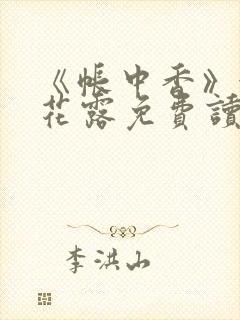 《帳中香》
花露免費讀
李洪山